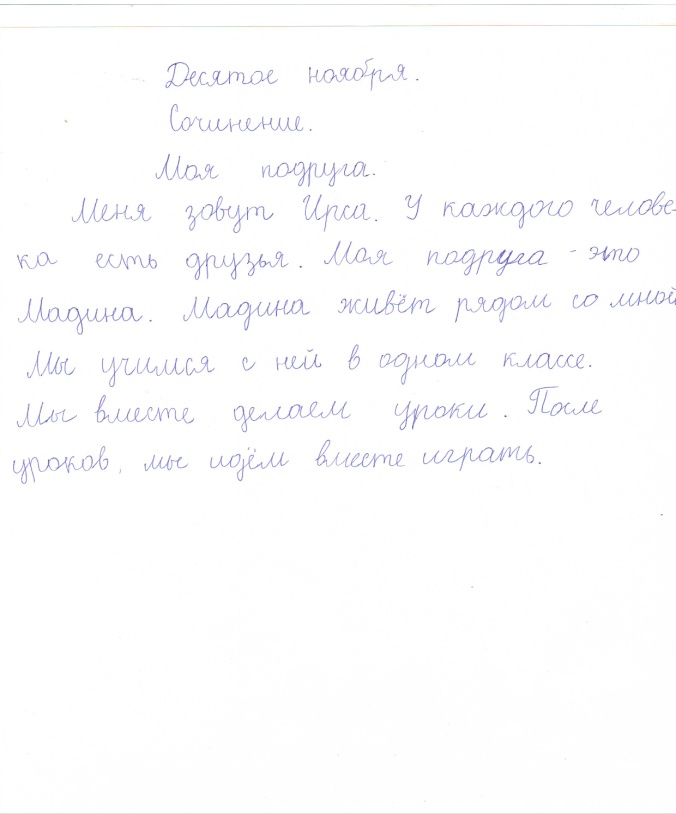 Десятое ноября.
Сочинение.
Моя подруга.
Меня зовут Ирса. У каждого челове-
ка есть друзья. Моя подруга - это
Мадина. Мадина живёт рядом со мной
Мы учимся с ней в одном классе.
Мы вместе делаем уроки. После
уроков, мы идём вместе играть.